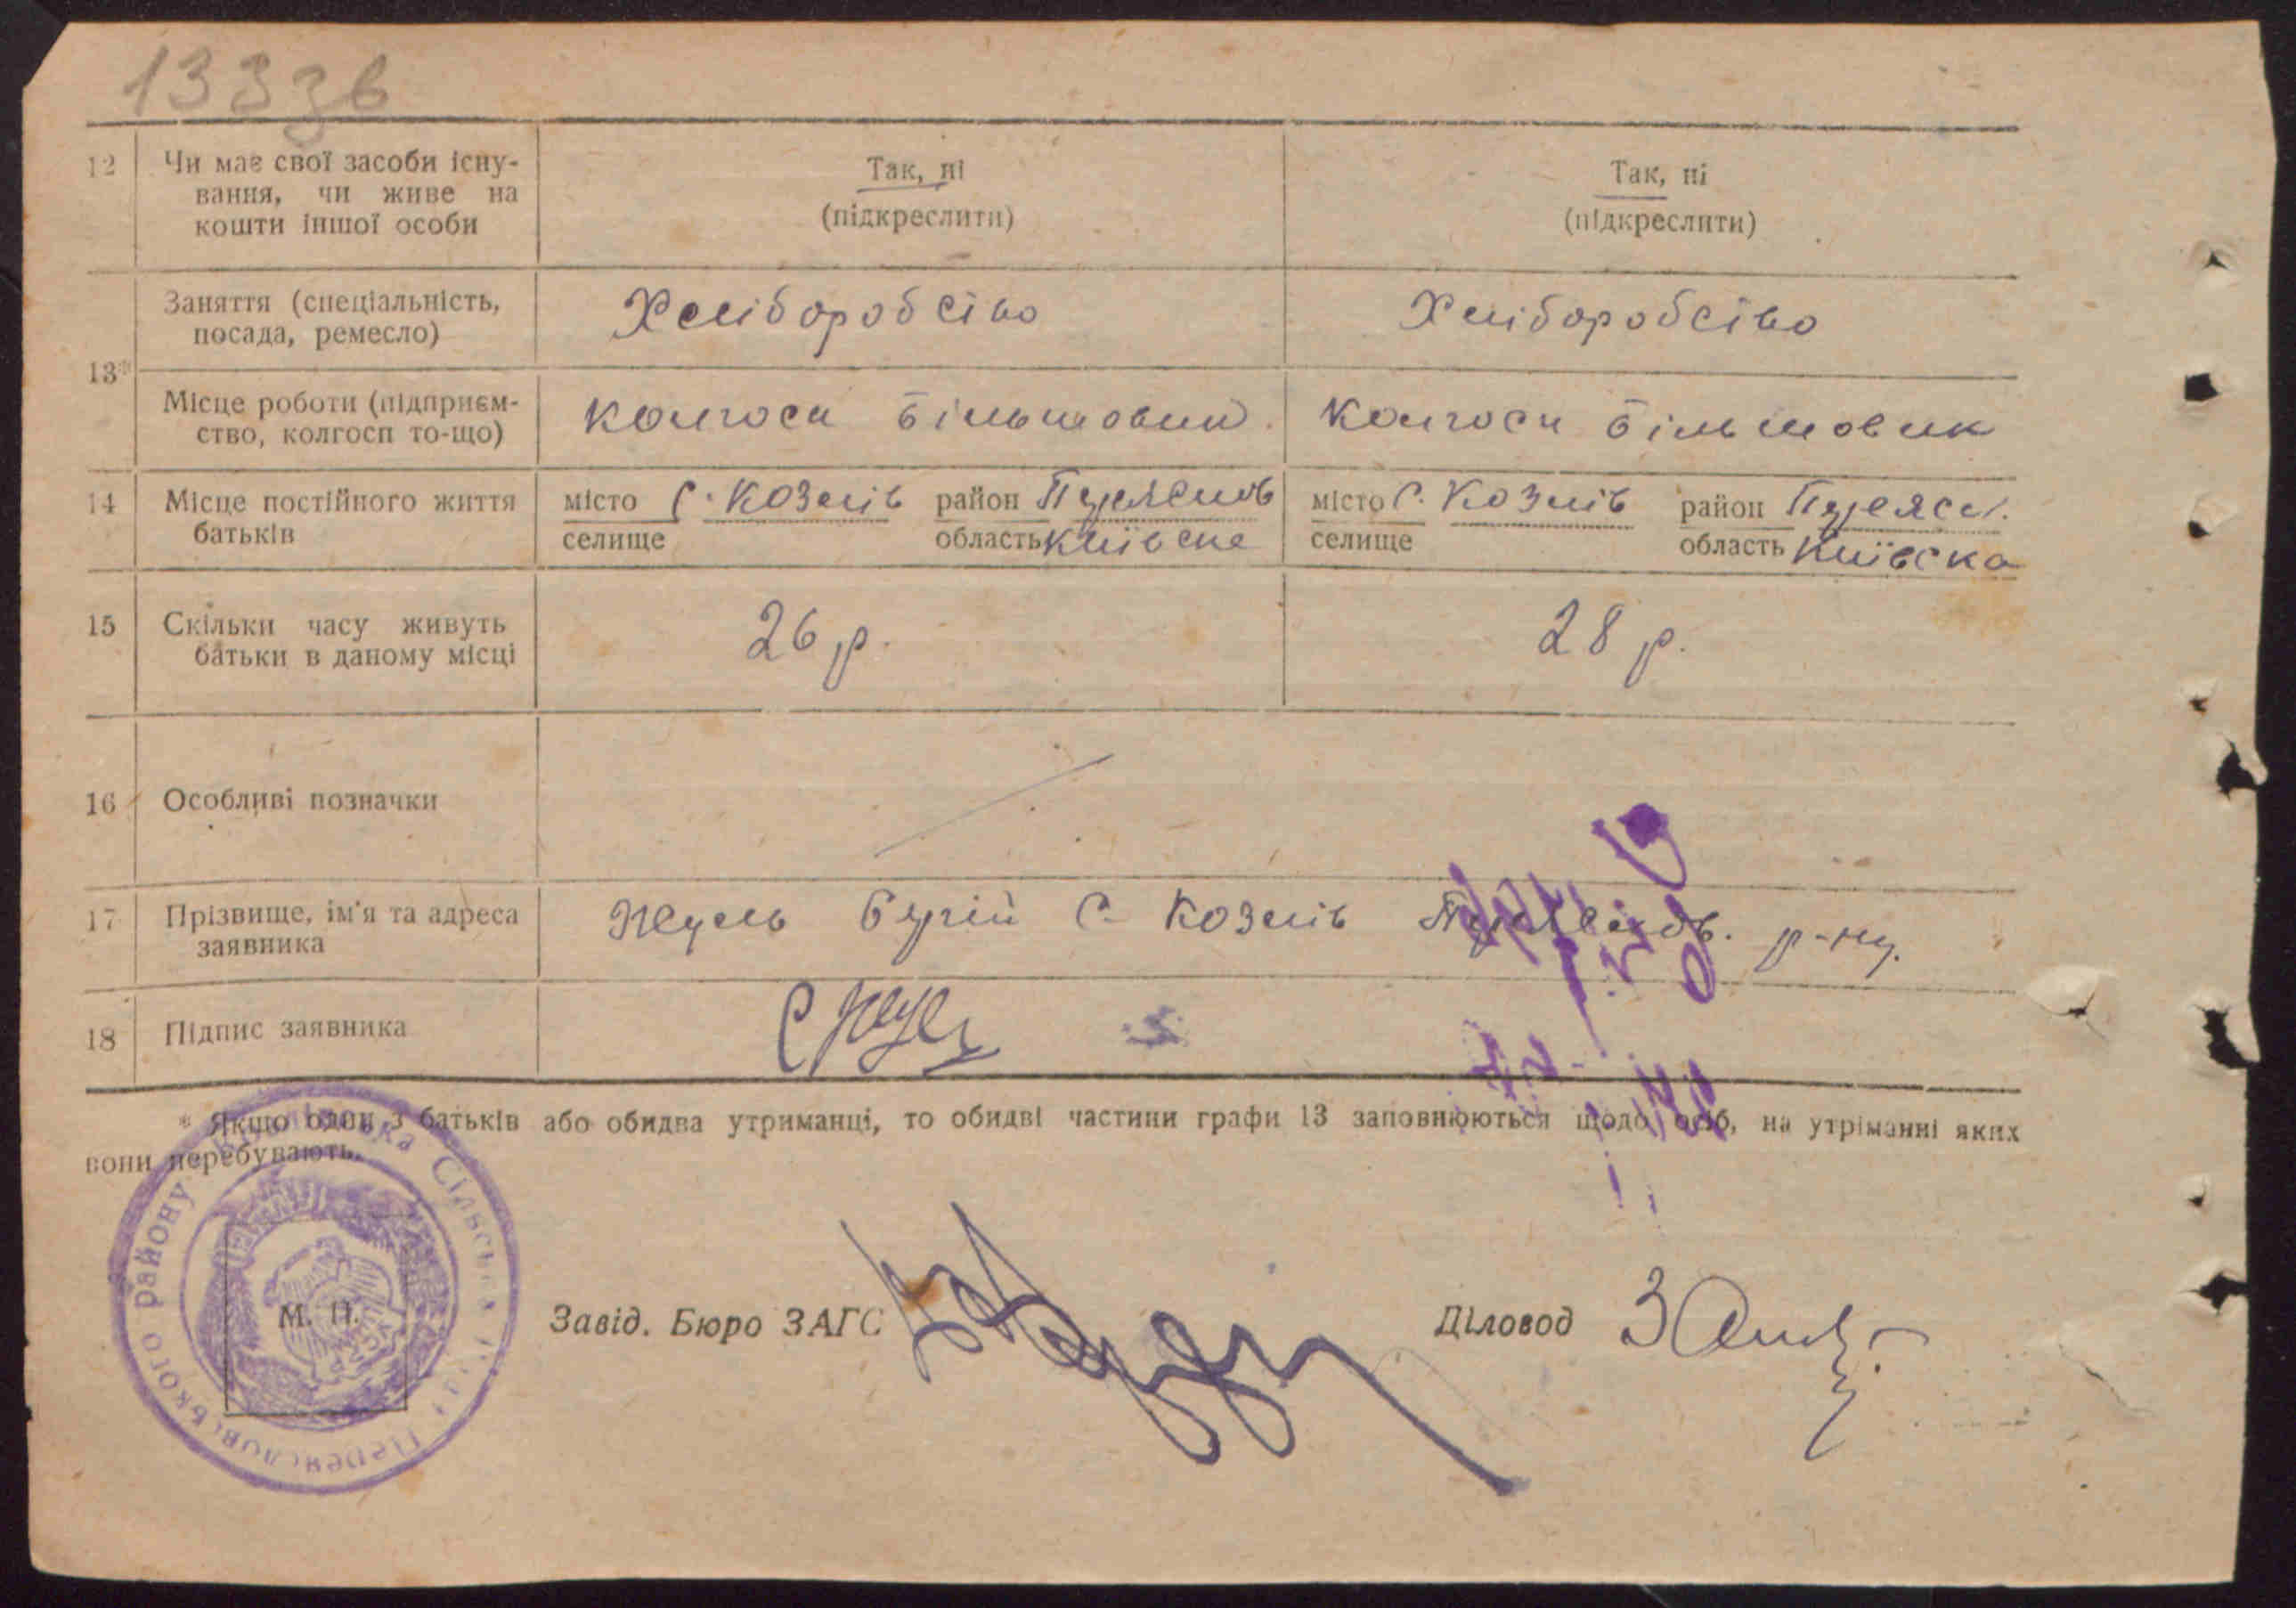 133зв
12 Чи має свої засоби існу-
вання, чи живе на
кошти іншої особи
Так, ні
(підкреслити)
Так, ні
(підкреслити)
13*
Заняття (спеціальність,
посада, ремесло)
Хліборобство
Хліборобство
Місце роботи (підприєм-
ство, колгосп то-що)
колгосп більшовик
колгосп більшовик
14 Місце постійного життя
батьків
місто с. Козлів район Переяслов
селище область Київска
місто с. Козлів район Переясл.
селище область Київска
15 Скільки часу живуть
батьки в даному місці
26 р.
28 р.
16 Особливі позначки
17 Прізвище, ім'я та адреса
заявника
Жуль Сергій с. Козлів Переяслов. р-ну.
18 Підпис заявника
С Жуль
* Якщо один з батьків або обидва утриманці, то обидві частини графи 13 заповнюються щодо осіб, на утріманні яких
вони перебувають.
Сільська Рада Переяславського району
УССР
М. П.
Завід. Бюро ЗАГС
Діловод